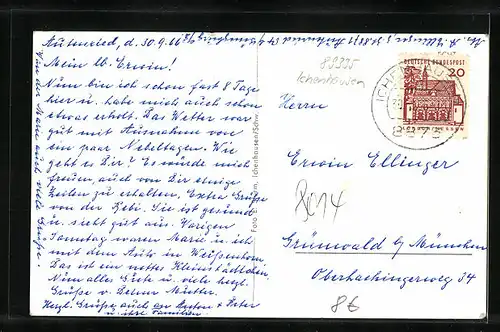 Autenried, d. 30.9.66
Mein lb. Erwin!
Nun bin ich schon fast 8 Tage
hier u. habe mich auch schon
etwas erholt. Das Wetter war
gut mit Ausnahme von
ein paar Nebeltagen. Wie
geht es Dir? Es würde mich
freuen, auch von Dir einige
Zeilen zu erhalten. Extra Grüße
von der Rebi. Sie ist gesund
u. sieht gut aus. Vorigen
Sonntag waren Marie u. ich
mit dem Auto in Weißenhorn.
Das ist ein nettes Kleinstädtchen.
Nun alles Gute u. viele herzl.
Grüße v. Deiner Mutter.
Herzl. Grüße auch an Anton + Peter
u. ihre Familien.
Von der Marie auch viele Grüße.
89335
Ichenhausen
DEUTSCHE BUNDESPOST
20
LORSCH/HESSEN
8873
Herrn
Erwin Ellinger
8014
Grünwald b/ München
Oberhachingerweg 34
8€